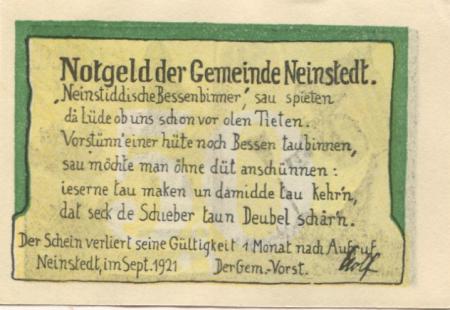 Notgeld der Gemeinde Neinstedt.
„Neinstiddische Bessenbinner,“ sau spieten
dä Lüde ob uns schon vor olen Tieten.
Vorstünn' einer hüte noch Bessen taubinnen,
sau möchte man öhne düt anschünnen:
ieserne tau maken un damidde tau kehr'n,
dat seck de Schieber taun Deubel schär'n.
Der Schein verliert seine Gültigkeit 1 Monat nach Aufruf
Neinstedt, im Sept. 1921 Der Gem.-Vorst.